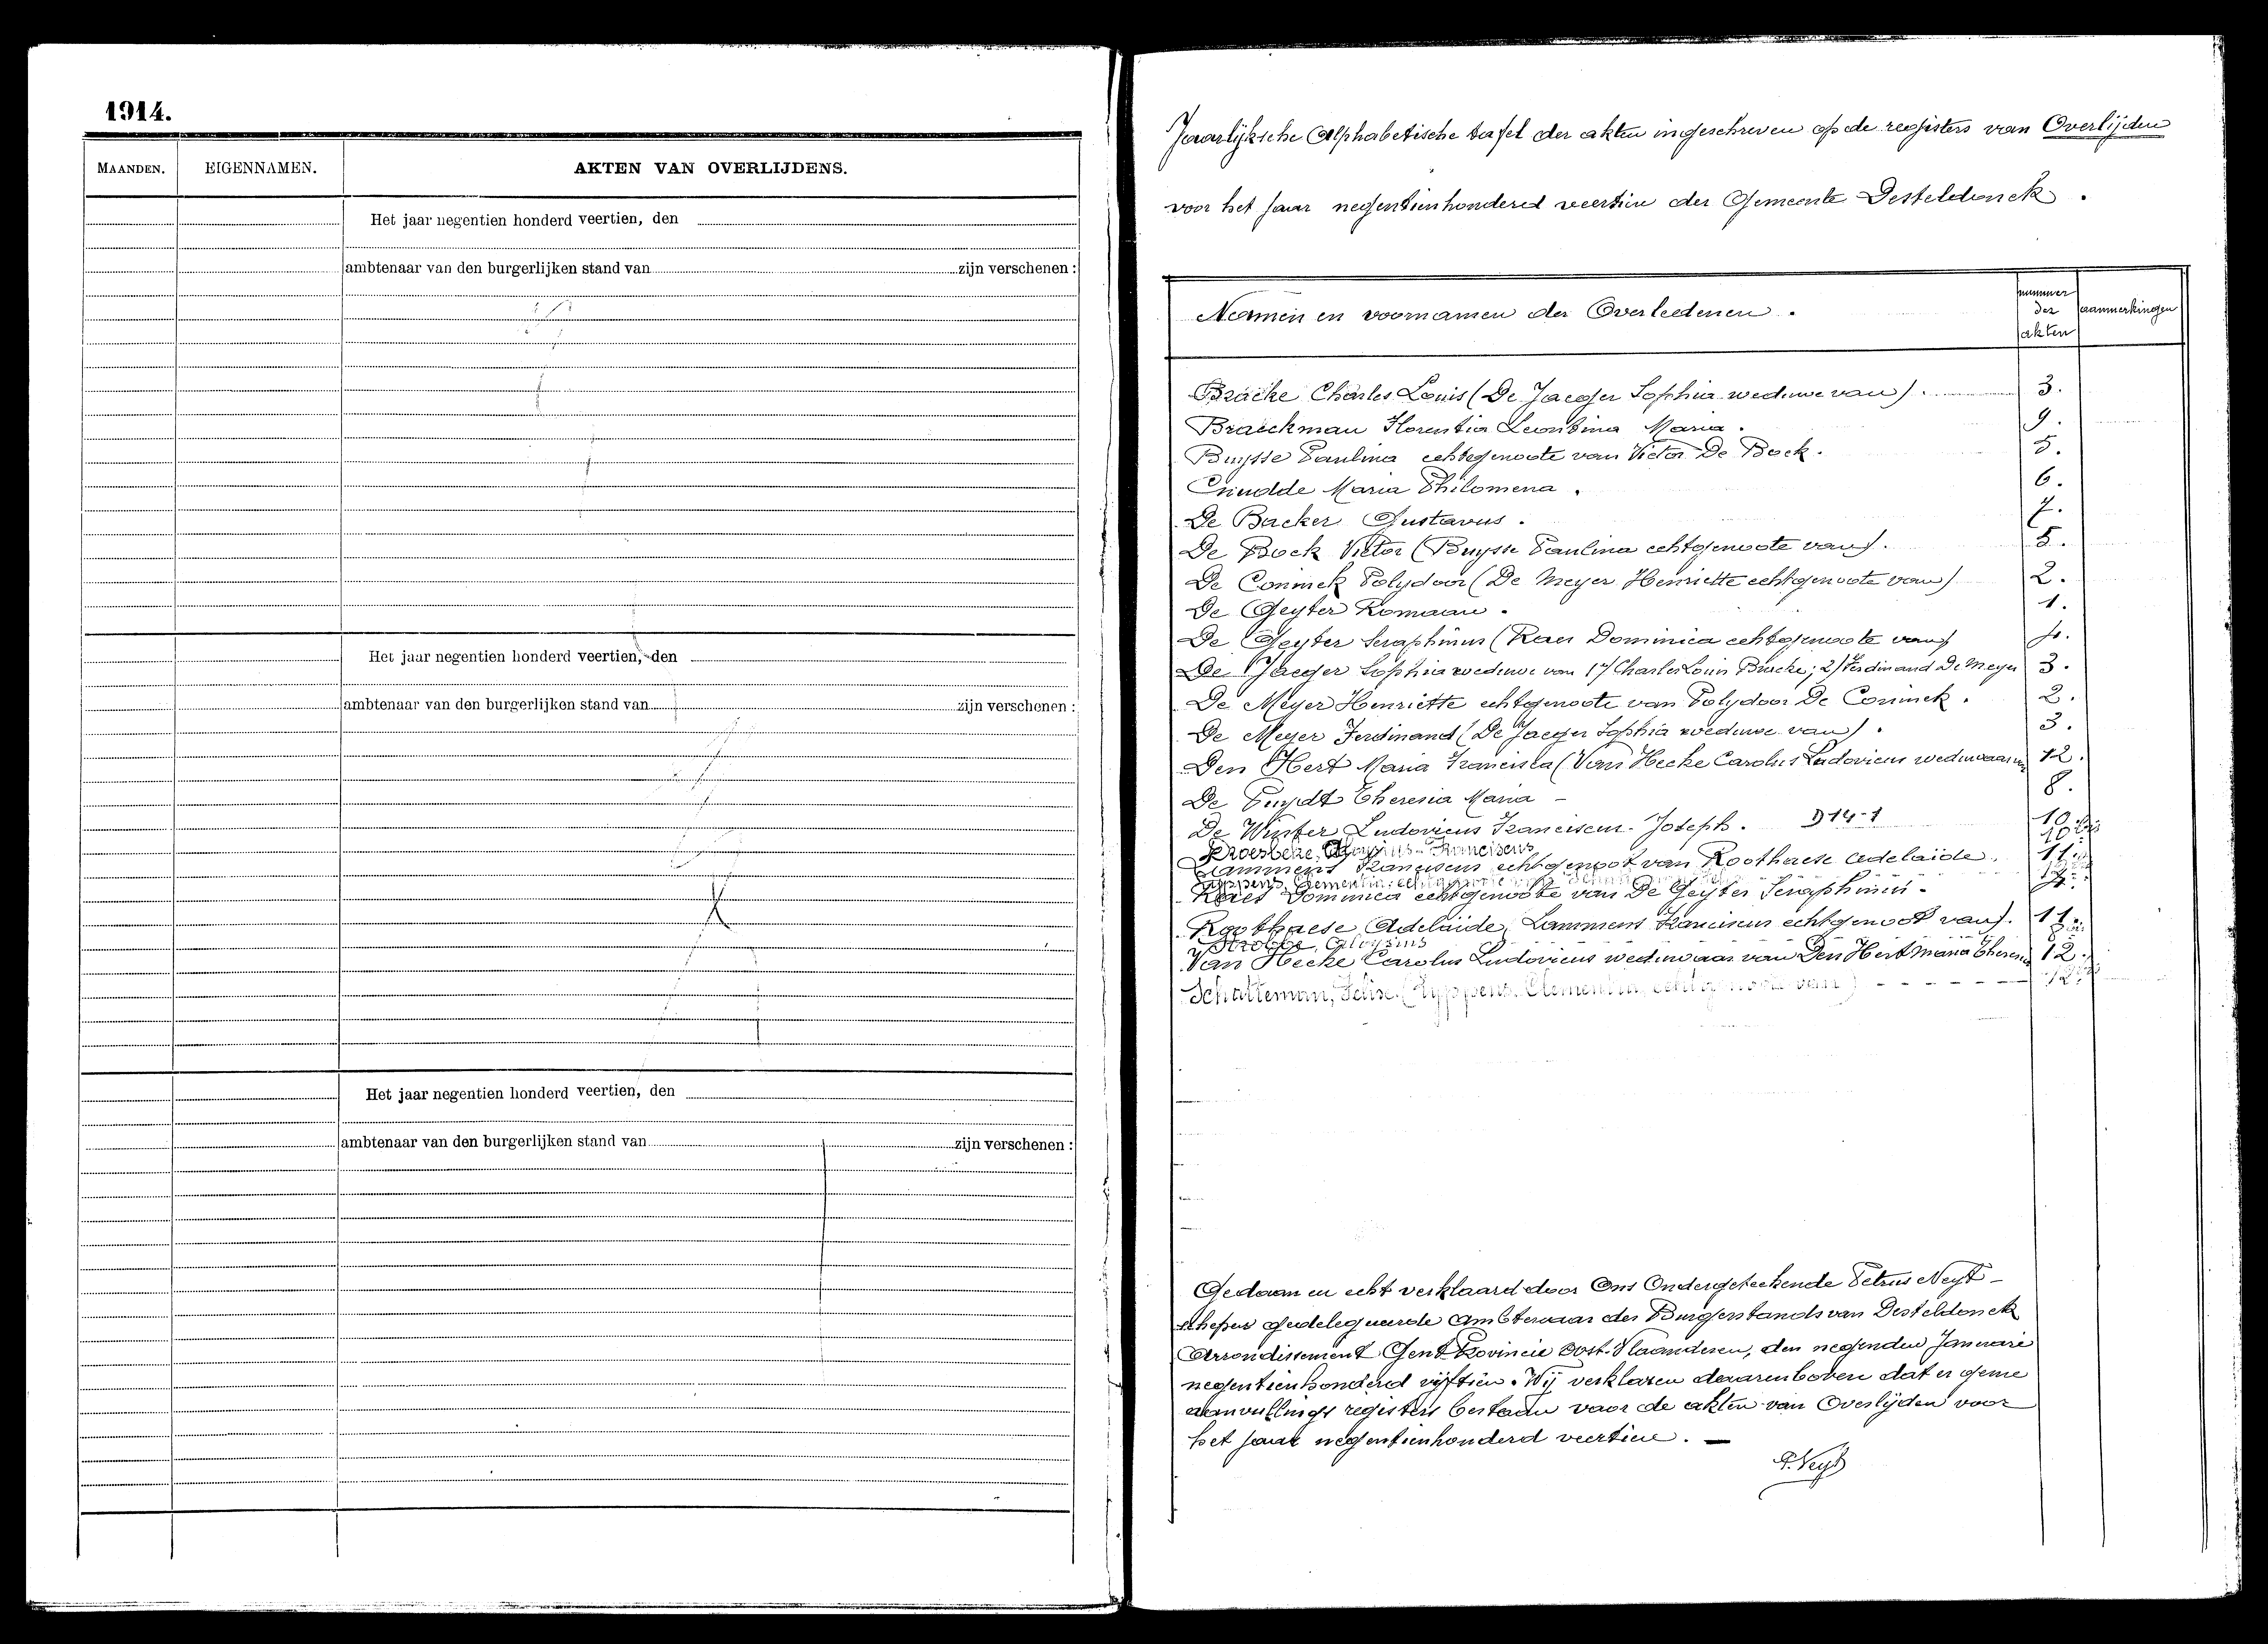 1914.
MAANDEN. EIGENNAMEN. AKTEN VAN OVERLIJDENS.
Het jaar negentien honderd veertien, den
ambtenaar van den burgerlijken stand van zijn verschenen :
Het jaar negentien honderd veertien, den
ambtenaar van den burgerlijken stand van zijn verschenen :
Het jaar negentien honderd veertien, den
ambtenaar van den burgerlijken stand van zijn verschenen :
Jaarlijksche Alphabetische tafel der akten ingeschreven op de registers van Overlijden
voor het jaar negentienhonderd veertien der Gemeente Desteldonck.
Namen en voornamen der Overledenen. nummer der akten aanmerkingen
Bracke Charles Louis (De Jaeger Sophia weduwe van). 3.
Braeckman Florentia Leontina Maria. 9.
Buysse Paulina echtegenoote van Victor De Bock. 5.
Cnudde Maria Philomena. 6.
De Backer Gustavus. 7.
De Bock Victor (Buysse Paulina echtgenoote van). 5.
De Coninck Polydoor (De Meyer Henriette echtgenoote van) 2.
De Geyter Romaan. 1.
De Geyter Seraphinus (Raes Dominica echtgenoote van)
De Jaeger Sophia weduwe van 1) Charles Louis Bracke; 2) Ferdinand De Meyer 3.
De Meyer Henriette echtgenoote van Polydoor De Coninck. 2.
De Meyer Ferdinand (De Jaeger Sophia weduwe van). 3.
Den Hert Maria Francisca (Van Hecke Carolus Ludovicus weduwaar van 12.
De Puydt Theresia Maria - 8.
De Winter Ludovicus Franciscus Joseph. D14-1 10
Franciscus 10
Lammens Franciscus echtgenoot van Roothaese Adelaide. 11
Clementia echtgenoote van
Raes Dominica echtgenoote van De Geyter Seraphinus.
Roothaese Adelaide, Lammens Franciscus echtgenoot van). 11.
Strobbe, Aloysius
Van Hecke Carolus Ludovicus weduwaar van Den Hert Maria 12.
Schatteman, (Lyppens, Clementia echtgenoote van) 12
Gedaan en echt verklaard door Ons Ondergeteekende Petrus Neyt
schepen gedelegueerde Ambtenaar des Burgerstands van Desteldonck
Arrondissement Gent Provincie Oost-Vlaanderen, den negenden Januari
negentienhonderd vijftien. Wij verklaren daarenboven dat er geene
aanvullings registers bestaan voor de akten van Overlijden voor
het jaar negentienhonderd veertien. —
P. Neyt